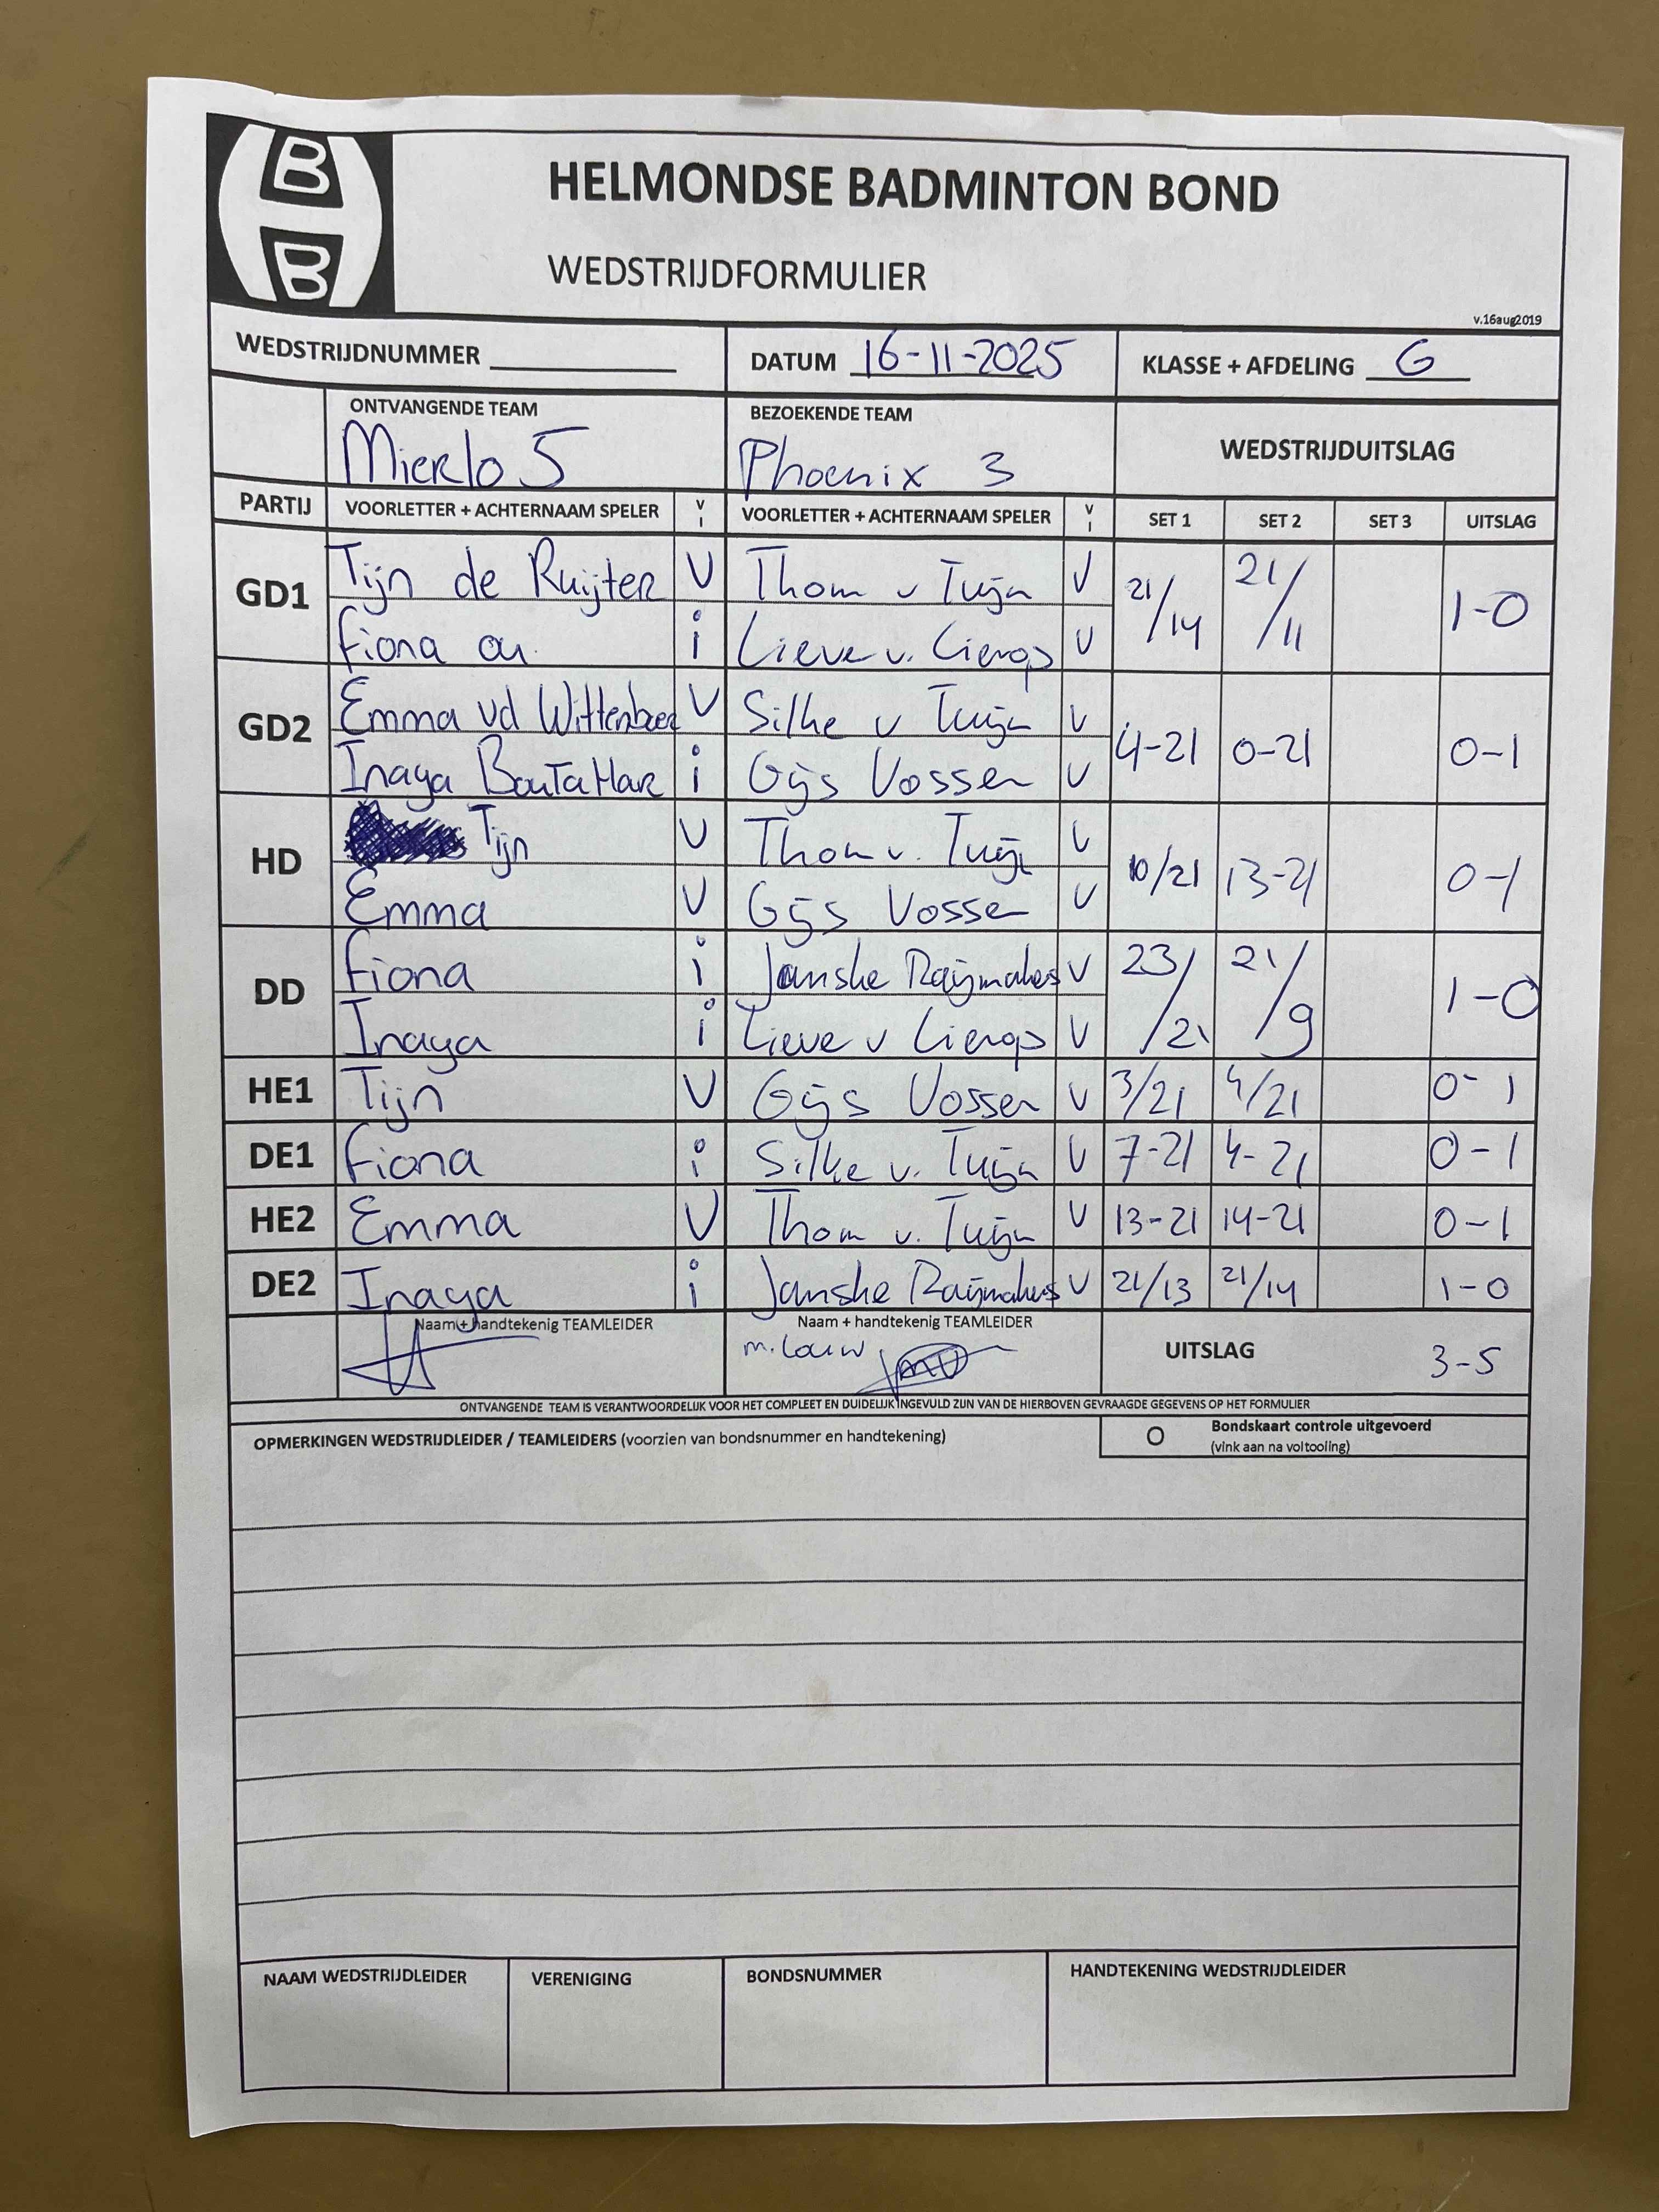 B
B
HELMONDSE BADMINTON BOND
WEDSTRIJDFORMULIER
v.16aug2019
WEDSTRIJDNUMMER DATUM 16-11-2025 KLASSE + AFDELING G
ONTVANGENDE TEAM BEZOEKENDE TEAM WEDSTRIJDUITSLAG
Mierlo 5 Phoenix 3
PARTIJ VOORLETTER + ACHTERNAAM SPELER V I VOORLETTER + ACHTERNAAM SPELER V I SET 1 SET 2 SET 3 UITSLAG
GD1 Tijn de Ruijter V Thom v Tuijn V 21/14 21/11 1-0
Fiona ou. i Lieve v. Lierop V
GD2 Emma vd Wittenboer V Silke v Tuijn V 4-21 0-21 0-1
Inaya BoutaHar i Gijs Vossen V
HD Tijn V Thom v. Tuijn V 10/21 13-21 0-1
Emma V Gijs Vossen V
DD Fiona i Janske Raijmakers V 23/21 21/9 1-0
Inaya i Lieve v Lierop V
HE1 Tijn V Gijs Vossen V 3/21 4/21 0-1
DE1 Fiona i Silke v. Tuijn V 7-21 4-21 0-1
HE2 Emma V Thom v. Tuijn V 13-21 14-21 0-1
DE2 Inaya i Janske Raijmakers V 21/13 21/14 1-0
Naam + handtekenig TEAMLEIDER Naam + handtekenig TEAMLEIDER UITSLAG 3-5
m. Louw
ONTVANGENDE TEAM IS VERANTWOORDELIJK VOOR HET COMPLEET EN DUIDELIJK INGEVULD ZIJN VAN DE HIERBOVEN GEVRAAGDE GEGEVENS OP HET FORMULIER
OPMERKINGEN WEDSTRIJDLEIDER / TEAMLEIDERS (voorzien van bondsnummer en handtekening) O Bondskaart controle uitgevoerd
(vink aan na voltooiing)
NAAM WEDSTRIJDLEIDER VERENIGING BONDSNUMMER HANDTEKENING WEDSTRIJDLEIDER